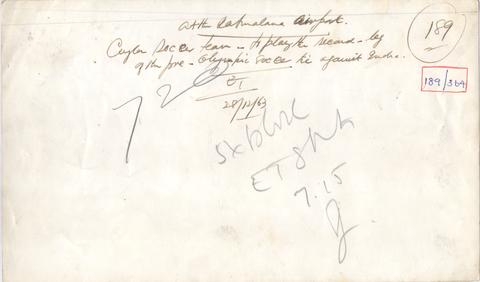 At the Ratmalana Airport.
189
Ceylon Soccer team - to play the second - leg
of the pre - Olympic Soccer tie against India.
189/364
ET
28/12/63
720
5x
ET
7.15